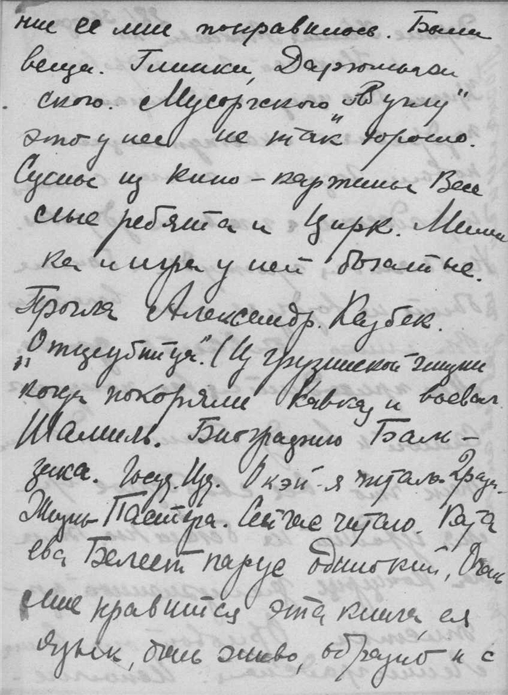 ние ее мне понравилось. Были
вещи. Глинки, Даргомыж
ского. Мусоргского „В углу"
это у нее не так хорошо.
Сцены из кино-картины Весе
лые ребята и Цирк. Мими
ка и игра у ней богатые.
Прочла Александр. Казбек.
„Отцеубийца". (Из грузинской жизни
когда покоряли Кавказ и воевал
Шамиль. Биографию Баль-
зака. Госуд. Изд. я читала
Жизнь Пастера. Сейчас читаю. Ката
ева Белеет парус одинокий, Очень
мне нравится эта книга, ея
язык, живо, образно и с